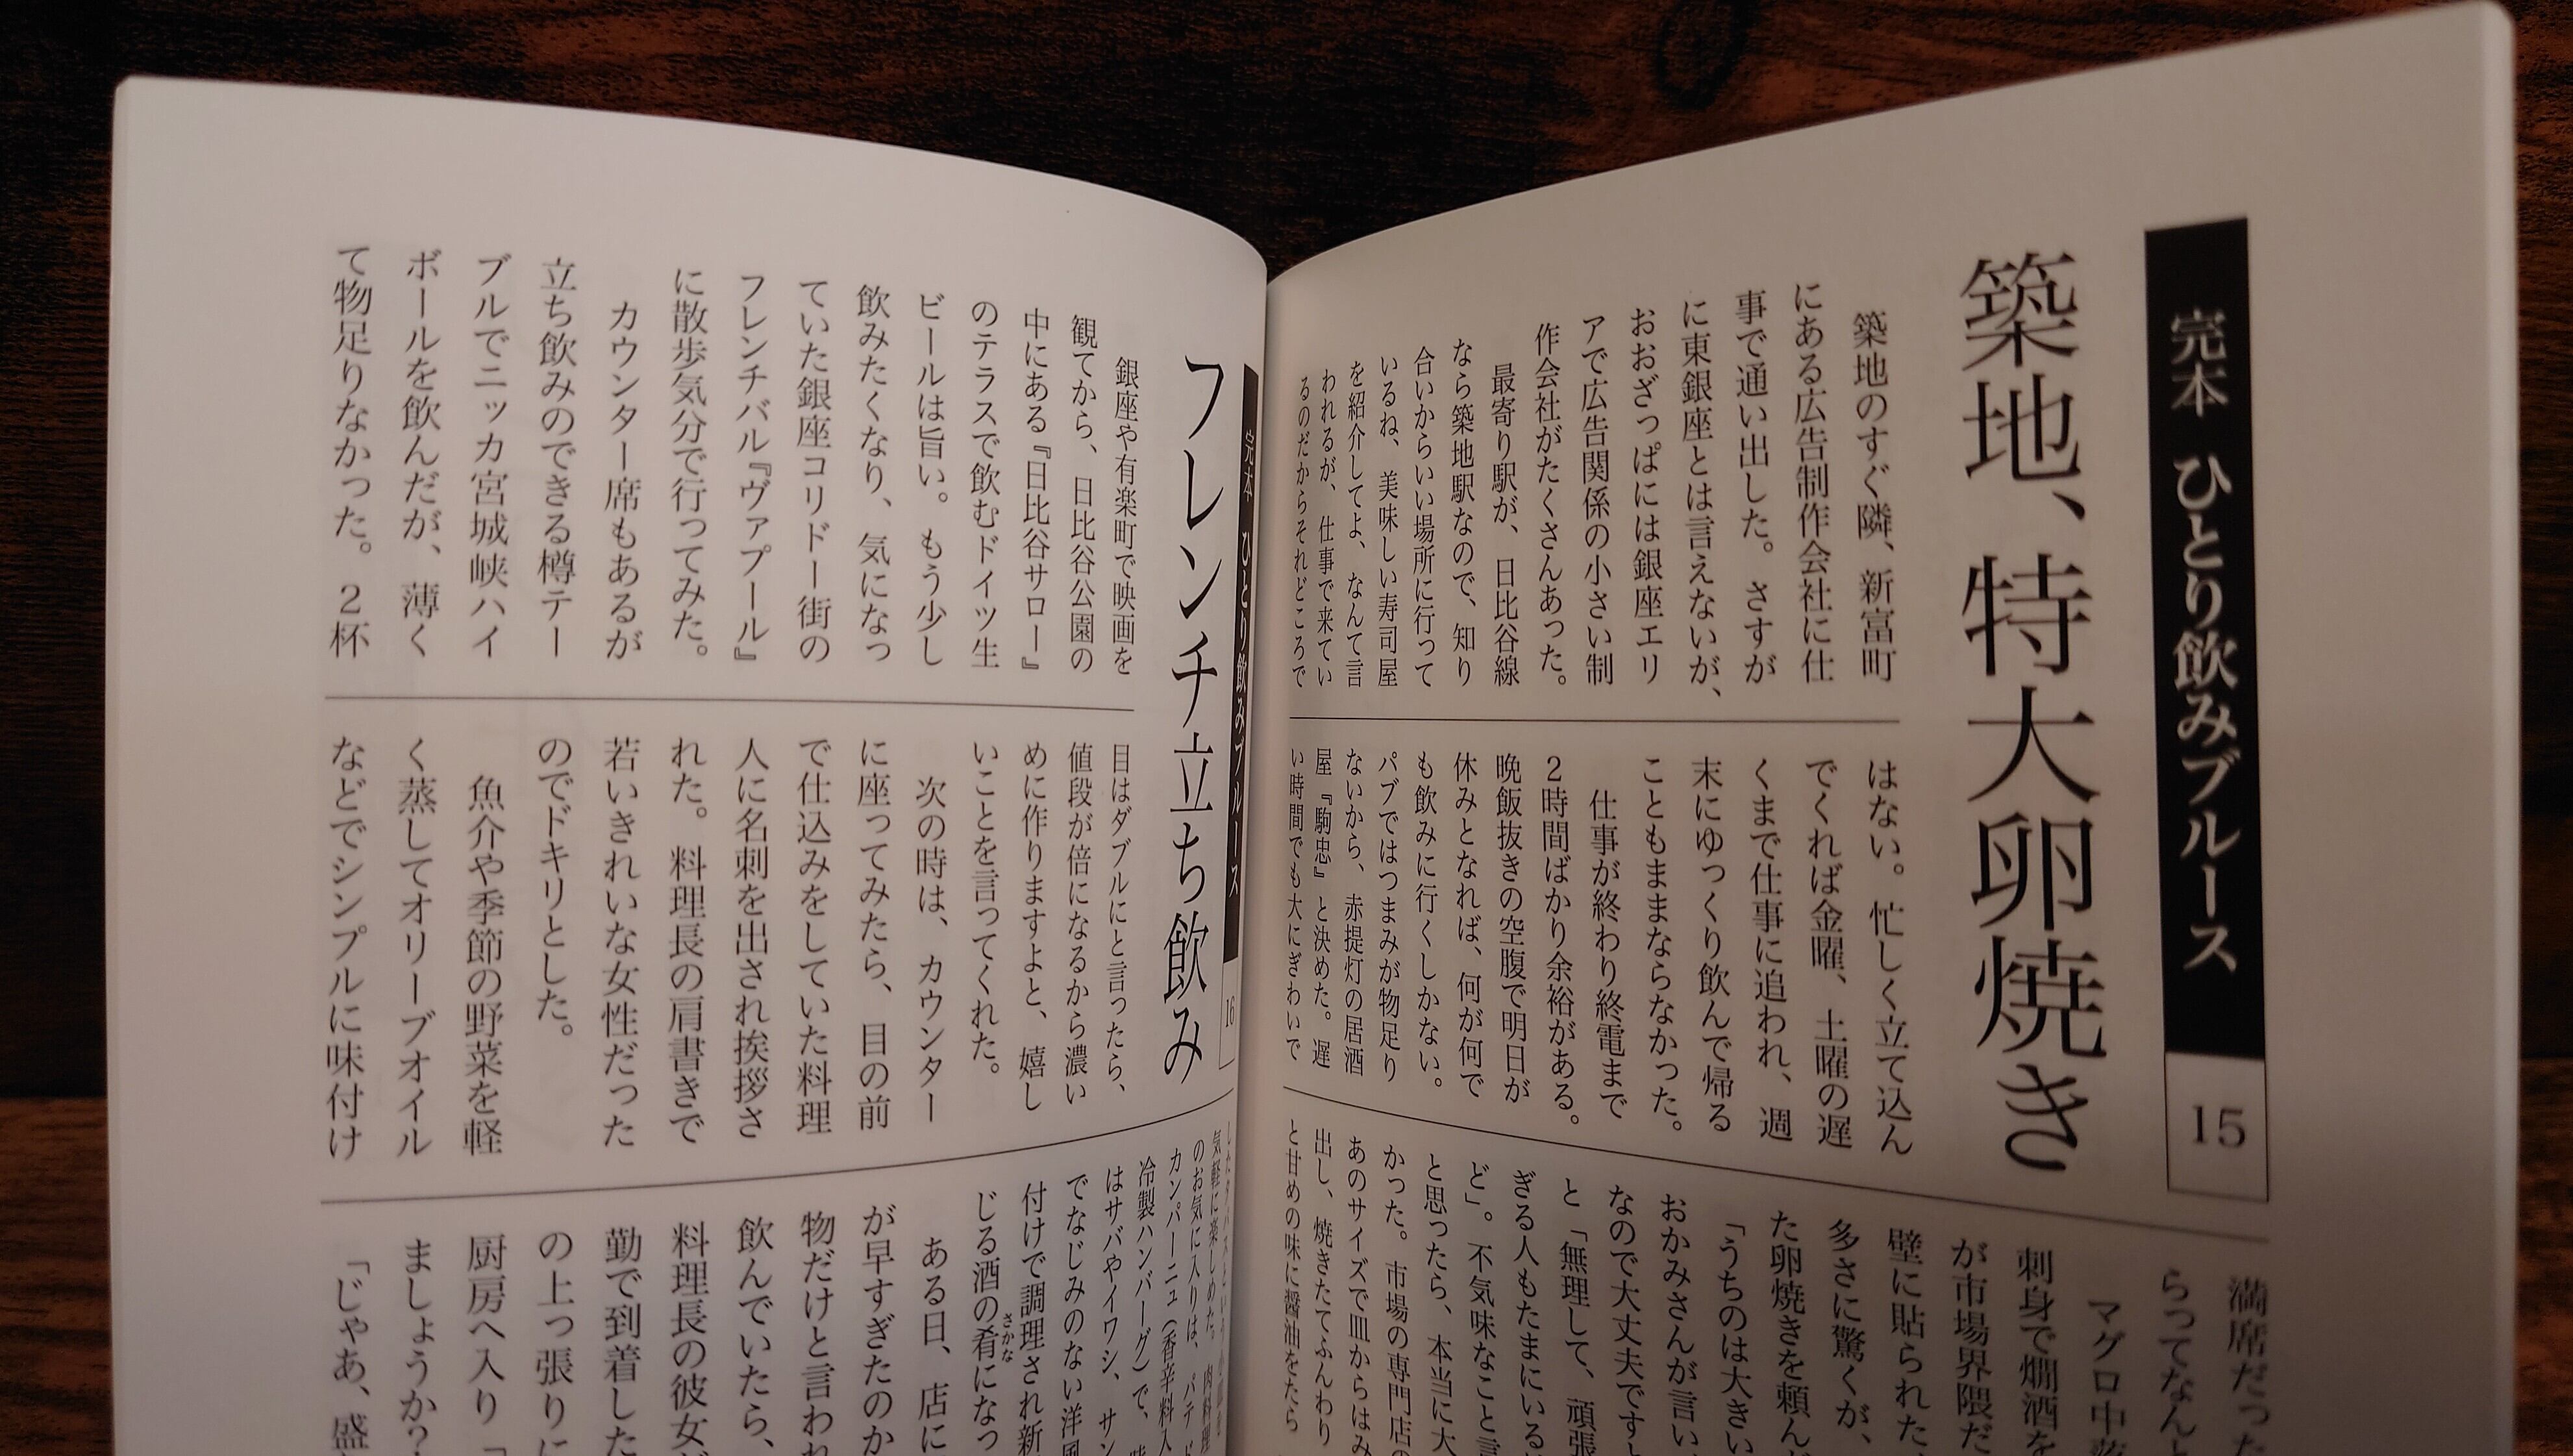 完本 ひとり飲みブルース
15
築地、特大卵焼き
築地のすぐ隣、新富町
にある広告制作会社に仕
事で通い出した。さすが
に東銀座とは言えないが、
おおざっぱには銀座エリ
アで広告関係の小さい制
作会社がたくさんあった。
最寄り駅が、日比谷線
なら築地駅なので、知り
合いからいい場所に行って
いるね、美味しい寿司屋
を紹介してよ、なんて言
われるが、仕事で来てい
るのだからそれどころで
はない。忙しく立て込ん
でくれば金曜、土曜の遅
くまで仕事に追われ、週
末にゆっくり飲んで帰る
こともままならなかった。
仕事が終わり終電まで
2時間ばかり余裕がある。
晩飯抜きの空腹で明日が
休みとなれば、何が何で
も飲みに行くしかない。
パブではつまみが物足り
ないから、赤提灯の居酒
屋『駒忠』と決めた。遅
い時間でも大にぎわいで
満席だった
らってなんと
マグロ中落
刺身で燗酒を
が市場界隈だ
壁に貼られた
多さに驚くが、
た卵焼きを頼ん
「うちのは大きい
おかみさんが言い
なので大丈夫ですと
と「無理して、頑張
ぎる人もたまにいる
ど」。不気味なこと言
と思ったら、本当に大
かった。市場の専門店の
あのサイズで皿からはみ
出し、焼きたてふんわり
と甘めの味に醤油をたら
完本 ひとり飲みブルース
16
フレンチ立ち飲み
銀座や有楽町で映画を
観てから、日比谷公園の
中にある『日比谷サロー』
のテラスで飲むドイツ生
ビールは旨い。もう少し
飲みたくなり、気になっ
ていた銀座コリドー街の
フレンチバル『ヴァプール』
に散歩気分で行ってみた。
カウンター席もあるが
立ち飲みのできる樽テー
ブルでニッカ宮城峡ハイ
ボールを飲んだが、薄く
て物足りなかった。2杯
目はダブルにと言ったら、
値段が倍になるから濃い
めに作りますよと、嬉し
いことを言ってくれた。
次の時は、カウンター
に座ってみたら、目の前
で仕込みをしていた料理
人に名刺を出され挨拶さ
れた。料理長の肩書きで
若いきれいな女性だった
のでドキリとした。
魚介や季節の野菜を軽
く蒸してオリーブオイル
などでシンプルに味付け
気軽に楽しめた。肉料理
のお気に入りは、パテ ド
カンパーニュ（香辛料入
冷製ハンバーグ）で、
はサバやイワシ、サン
でなじみのない洋風
付けで調理され新
じる酒の肴になっ
さかな
ある日、店に
が早すぎたのか
物だけと言われ
飲んでいたら、
料理長の彼女が
勤で到着した
の上っ張りに
厨房へ入り「
ましょうか？
「じゃあ、盛